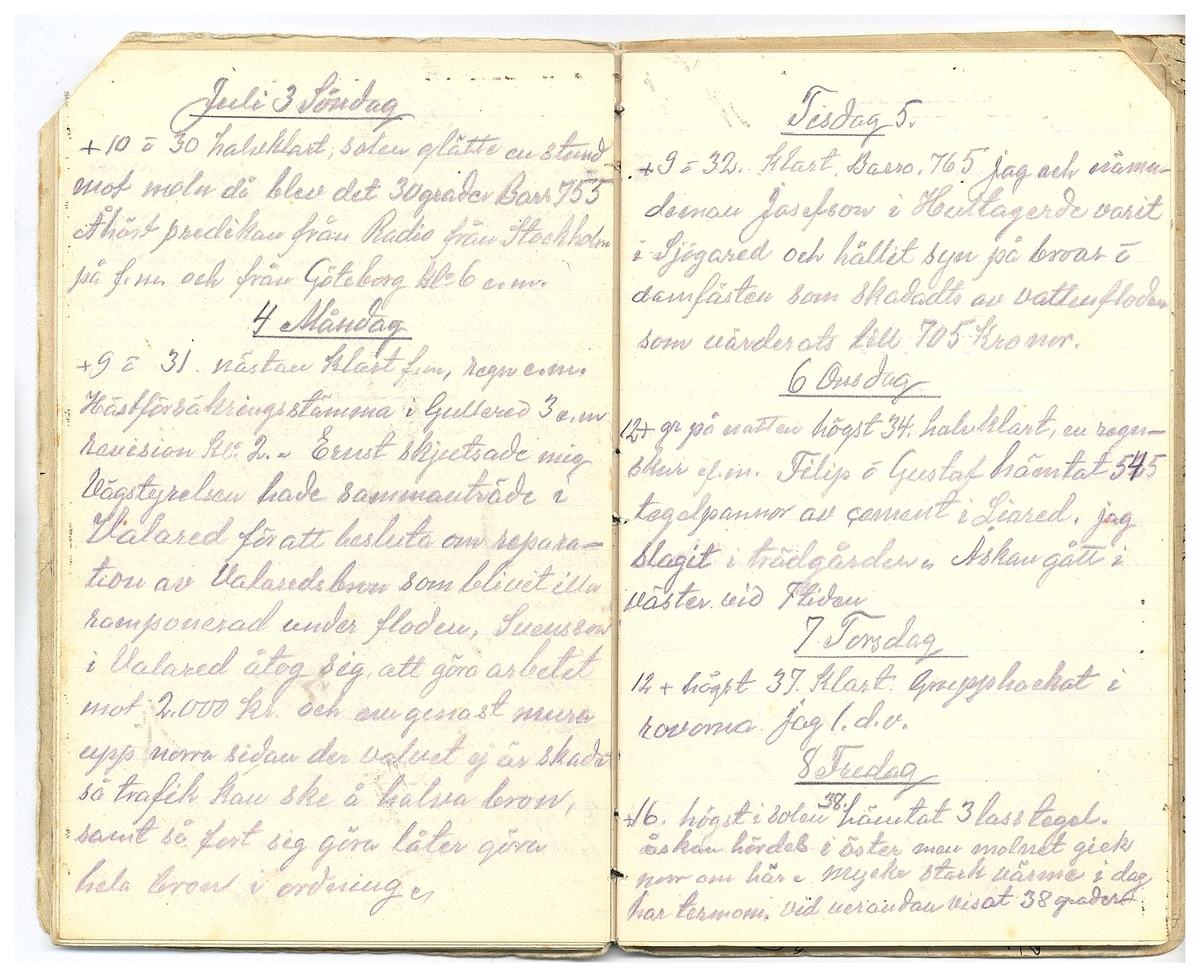 Juli 3 Söndag
+10 à 30 halvklart, solen glätte en stund
mot moln då blev det 30 grader Baro 755
Åhört predikan från Radio från Stockholm
på f.m. och från Göteborg kl: 6 e.m.
4 Måndag
+9 à 31. nästan klart f.m, regn e.m.
Hästförsäkringsstämma i Gullered 3 e.m
revision kl: 2. Ernst skjutsade mig
Vägstyrelsen hade sammanträde i
Valared för att besluta om repara-
tion av Valaredsbron som blivit illa
ramponerad under floden, Svensson
i Valared åtog sig, att göra arbetet
mot 2.000 kr. och nu genast mura
upp norra sidan der valvet ej är skadat
så trafik kan ske å halva bron,
samt så fort sig göra låter göra
hela bron i ordning
Tisdag 5.
+9 à 32. klart. Baro. 765 jag och nämn-
deman Josefson i Hultagerde varit
i Sjögared och hållit syn på broar o
damfästen som skadadts av vattenfloden
som värderats till 705 Kronor.
6 Onsdag
12+ gr på natten högst 34. halvklart, en regn-
skur e.f.m. Filip o Gustaf hämtat 545
tegelpannor av cement i Liared. jag
slagit i trädgården. Åskan gått i
väster vid
7 Torsdag
12 + högst 37. klart. Grupphackat i
rovorna jag l.d.v.
8 Fredag
+16. högst i solen 38. hämtat 3 lass tegel.
åskan hördes i öster men molnet gick
norr om här. mycke stark värme i dag
har termom. vid verandan visat 38 grader